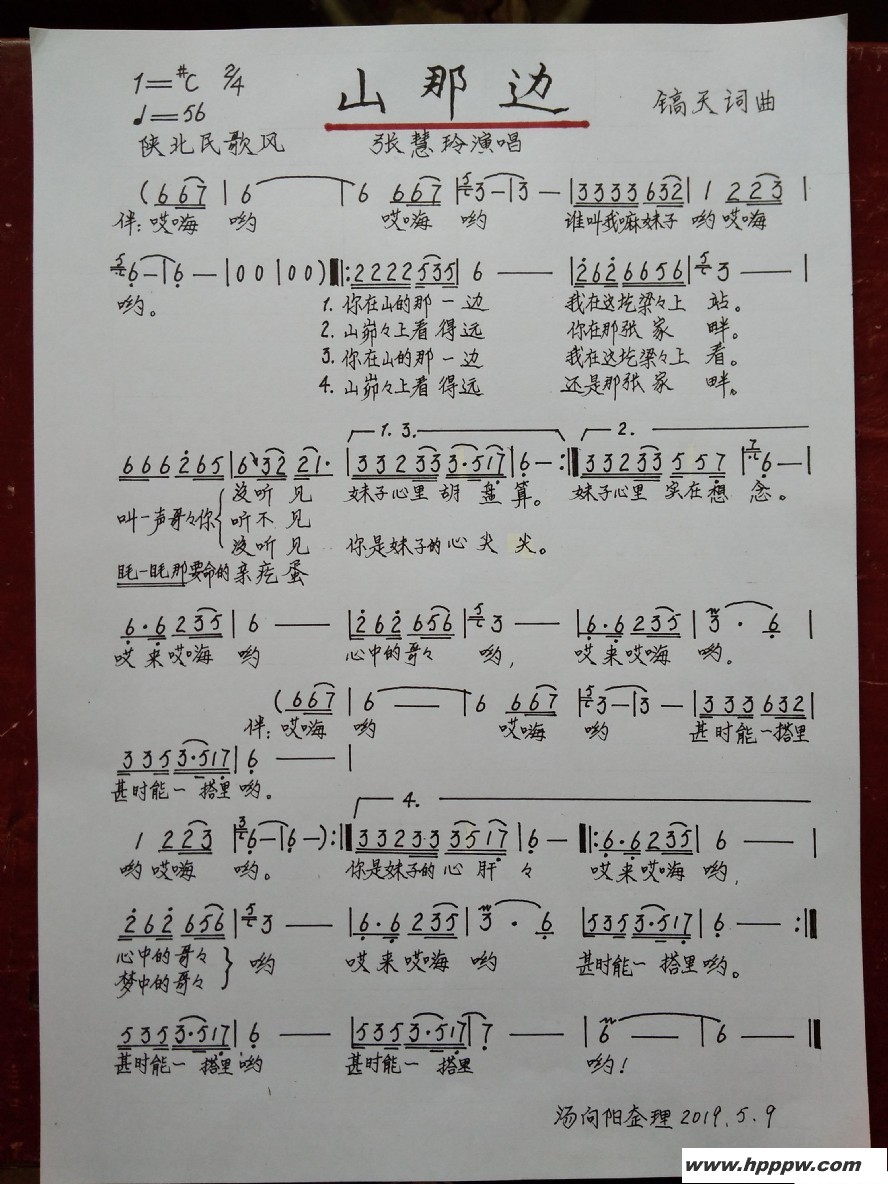 1=#C 2/4
山那边
镐天词曲
♩=56
陕北民歌风
张慧玲演唱
( 6 6 7 | 6 | 6 6 6 7 | 5 3 - | 3 - | 3 3 3 3 6 3 2 | 1 2 2 3 |
伴: 哎嗨 哟 哎嗨 哟 谁叫我嘛妹子 哟 哎嗨
5 6 - | 6 - | 0 0 | 0 0 ) ‖: 2 2 2 2 5 3 5 | 6 — | 2 6 2 6 6 5 6 | 5 3 — |
哟。 1. 你在山的那一边 我在这圪梁々上 站。
2. 山峁々上看得远 你在那张家 畔。
3. 你在山的那一边 我在这圪梁々上 看。
4. 山峁々上看得远 还是那张家 畔。
1. 3. 2.
6 6 6 2 6 5 | 6 3 2 2 1· | 3 3 2 3 3 3·5 1 7 | 6 - :‖ 3 3 2 3 3 5 5 7 | 7 6 — |
没听见 妹子心里 胡盘算。 妹子心里 实在想 念。
叫一声哥々你 听不见
没听见 你是妹子的心尖尖。
眊一眊那要命的亲疙蛋
6·6 2 3 5 | 6 — | 2 6 2 6 5 6 | 5 3 — | 6·6 2 3 5 | 3 · 6 |
哎来哎嗨 哟 心中的哥々 哟, 哎来哎嗨 哟。
( 6 6 7 | 6 — | 6 6 6 7 | 5 3 - | 3 - | 3 3 3 6 3 2 |
伴: 哎嗨 哟 哎嗨 哟 甚时能一搭里
3 3 5 3·5 1 7 | 6 — |
甚时能一搭里哟。
4.
1 2 2 3 | 3 6 - | 6 - ) :‖ 3 3 2 3·3 3 5 1 7 | 6 — ‖: 6·6 2 3 5 | 6 — |
哟 哎嗨 哟。 你是妹子的心肝々 哎来哎嗨 哟,
2 6 2 6 5 6 | 5 3 — | 6·6 2 3 5 | 3 · 6 | 5 3 5 3·5 1 7 | 6 — :‖
心中的哥々 哟 哎来哎嗨 哟 甚时能一搭里哟。
梦中的哥々
5 3 5 3·5 1 7 | 6 — | 5 3 5 3·5 1 7 | 7 — | 6 — | 6 — ‖
甚时能一搭里哟 甚时能一搭里 哟!
汤向阳整理 2019.5.9
www.hpppw.com